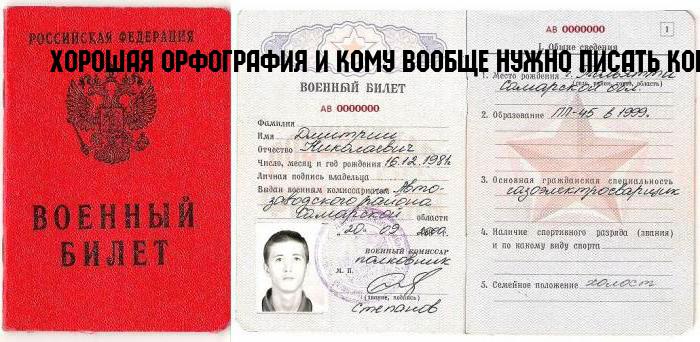 РОССИЙСКАЯ ФЕДЕРАЦИЯ
ВОЕННЫЙ
БИЛЕТ
ХОРОШАЯ ОРФОГРАФИЯ И КОМУ ВООБЩЕ НУЖНО ПИСАТЬ КО
ВОЕННЫЙ БИЛЕТ
АВ 0000000
Фамилия
Имя Дмитрий
Отчество Николаевич
Число, месяц и год рождения 16.12.198
Личная подпись владельца
Выдан военным комиссариатом Авто-
заводского района
Самарской области
"20" 09
ВОЕННЫЙ КОМИССАР
полковник
М. П.
(звание, подпись)
Степанов
АВ 0000000
1
I. Общие сведения
1. Место рождения г.
Самарской обл.
2. Образование ПЛ-45 в 1999г.
3. Основная гражданская специальность
газоэлектросварщик
4. Наличие спортивного разряда (звания)
и по какому виду спорта
5. Семейное положение холост